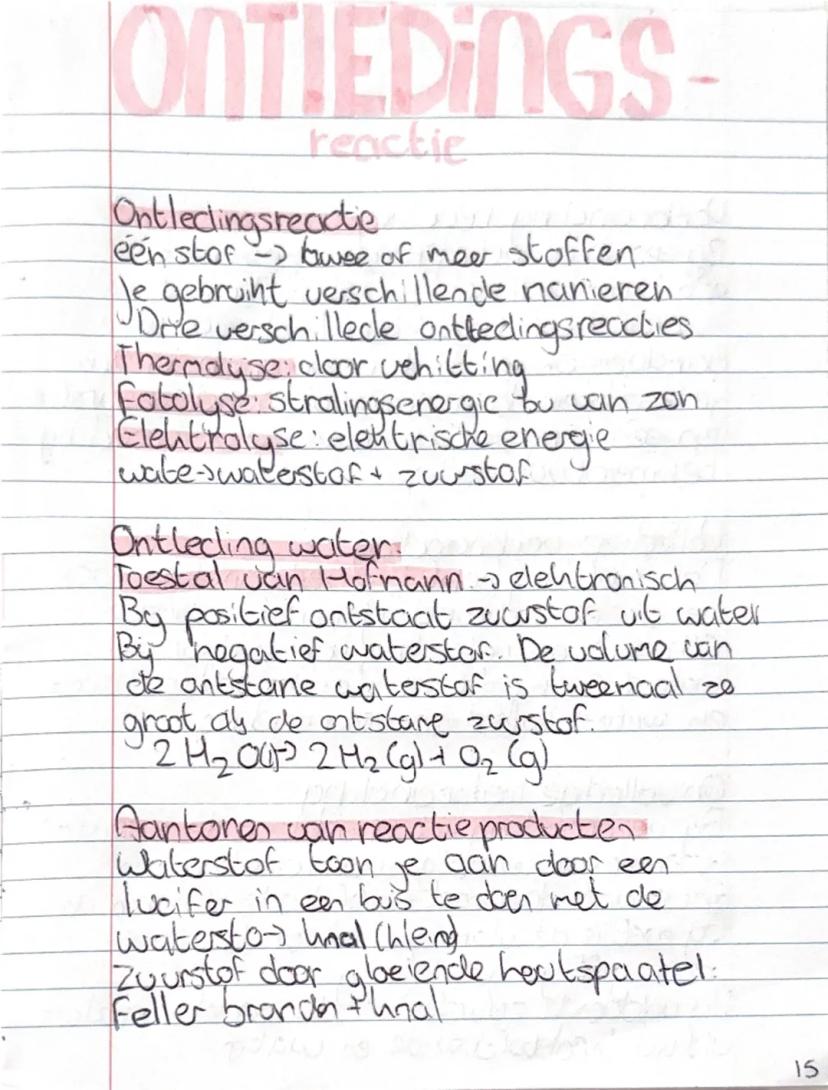 ONTlEDiNGS-
reactie
Ontledingsreactie
één stof -> twee of meer stoffen
Je gebruikt verschillende manieren
Drie verschillede ontledingsreacties
Thermolyse: door vehitting
Fotolyse: stralingsenergie bv van zon
Elektrolyse: elektrische energie
wate->waterstof + zuurstof
Ontleding water:
Toestal van Hofmann -> elektronisch
By positief ontstaat zuurstof uit water
Bij negatief waterstof. De volume van
de ontstane waterstof is tweemaal zo
groot als de ontstane zuurstof.
2 H₂O(l)-> 2 H₂ (g) + O₂ (g)
Aantonen van reactieproducten
Waterstof toon je aan door een
lucifer in een buis te doen met de
watersto-> knal (klein)
Zuurstof door gloeiende houtspaatel:
Feller branden + knal
15